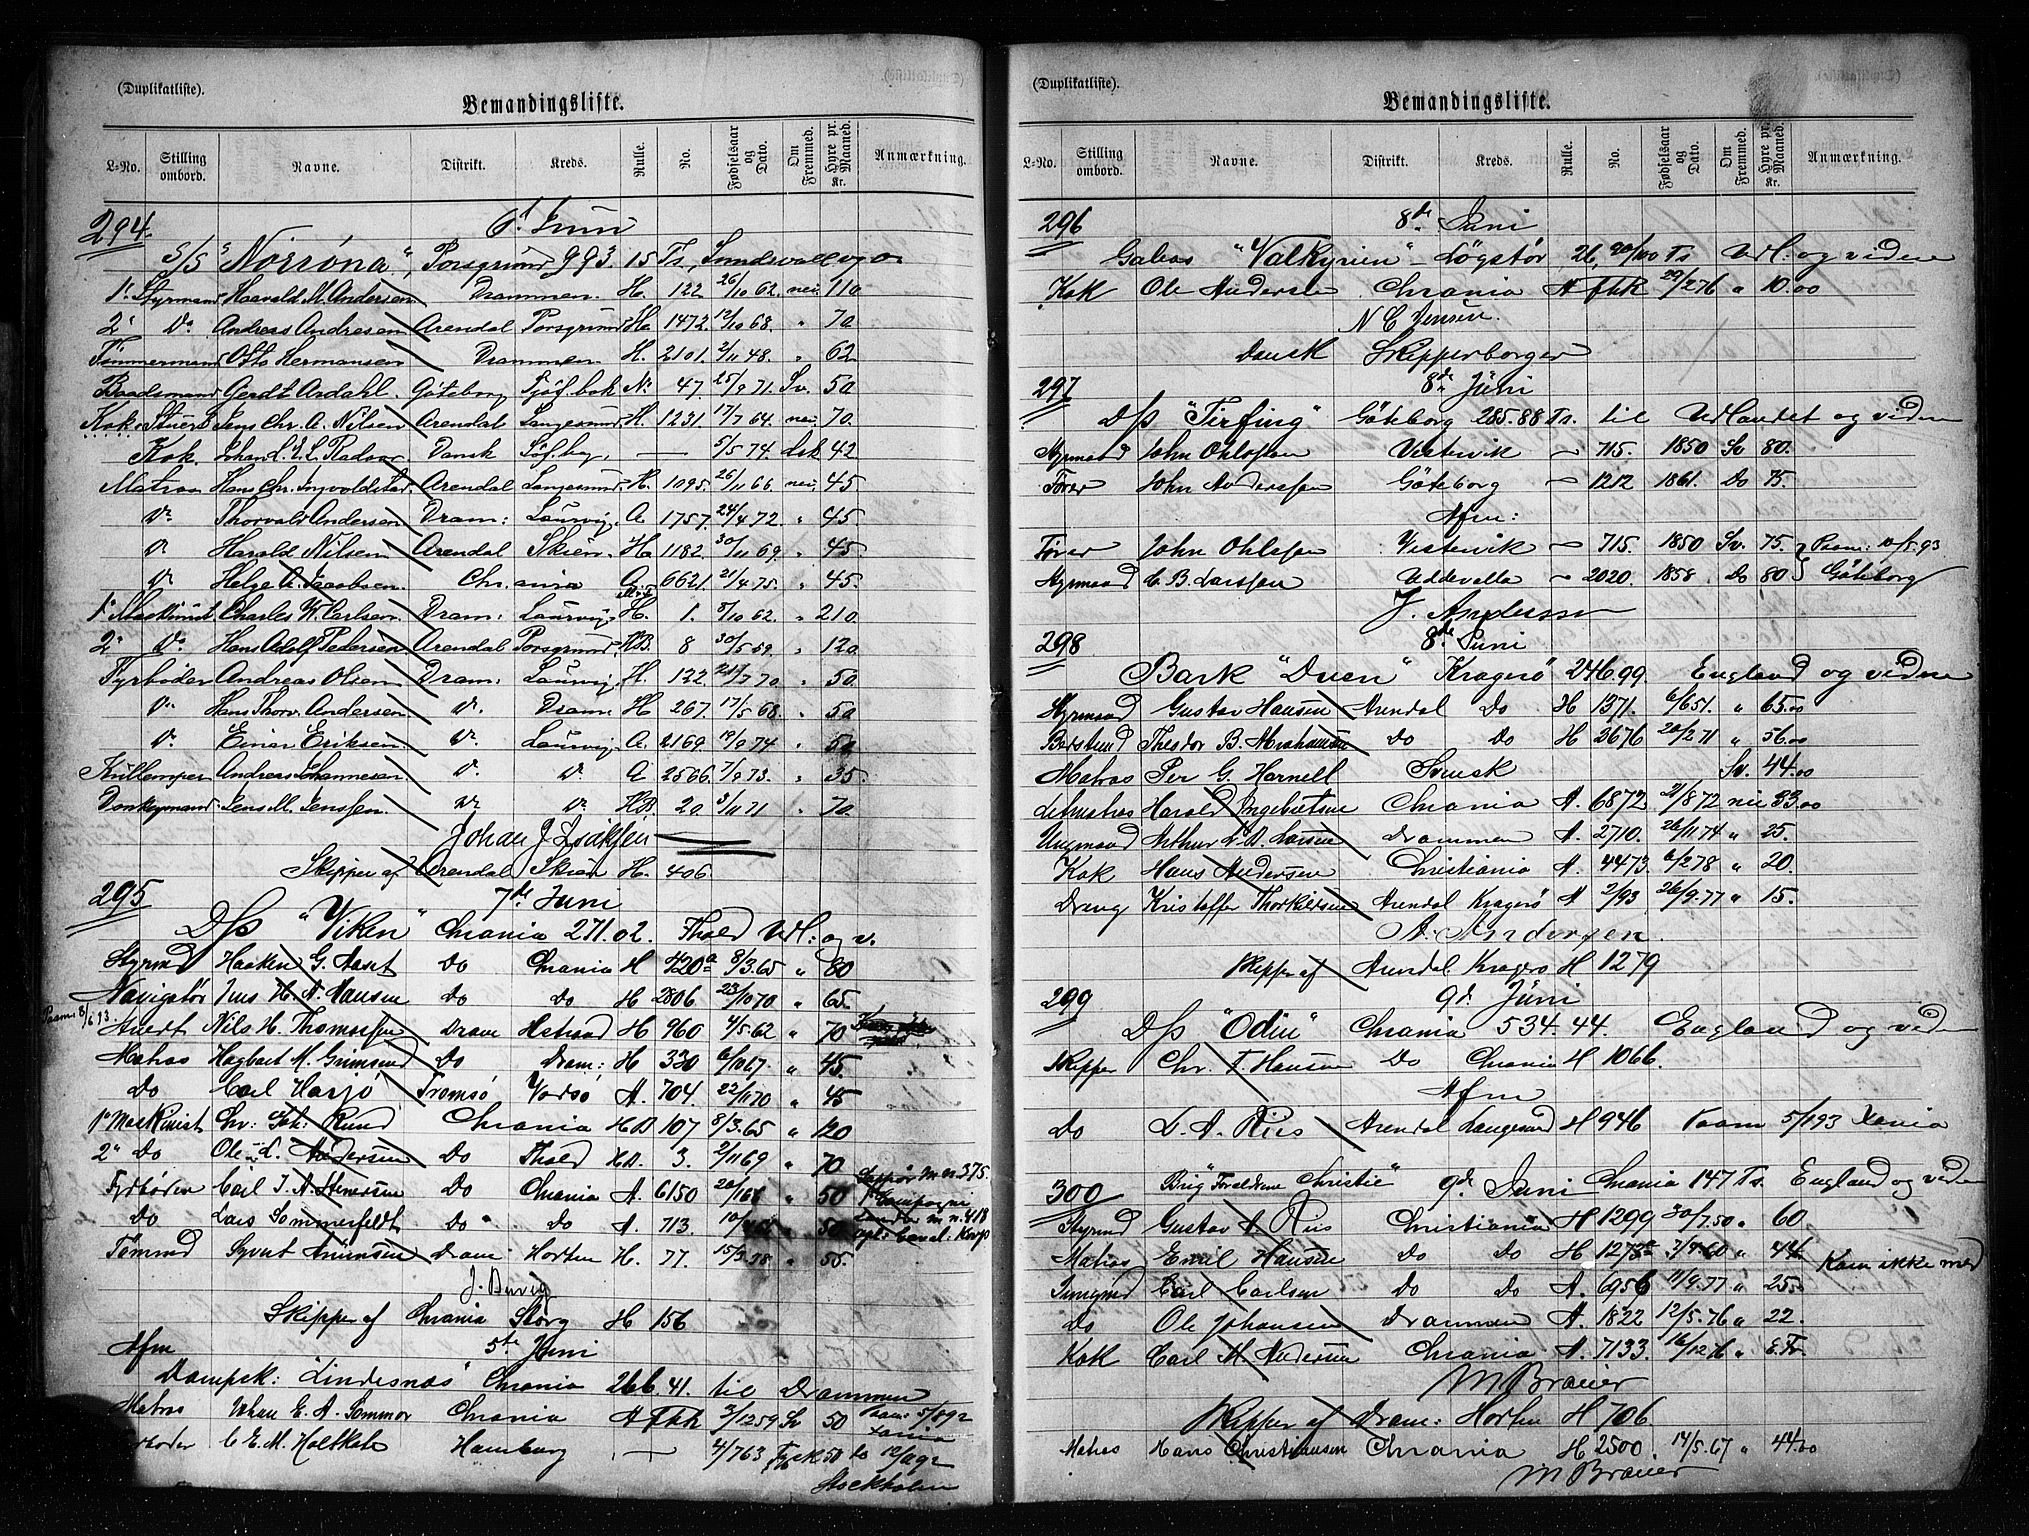 (Duplikatliste).
Bemandingsliste.
L-No. Stilling ombord. Navne. Distrikt. Kreds. Rulle. No. Fødselsaar og Dato. Om Fremmed. Hyre pr. Maaned. Kr. Anmærkning.
294. 6' Juni
S/S "Norrøna", Porsgrund 993.15 Ts, Sundsvall og v.
1' Styrmand Haavald M. Andersen Drammen. H. 122 26/10 62. nei. 110
2' Do Andreas Andresen Arendal Porsgrund H. 1472. 12/10 68. " 70
Tømmermand Otto Hermansen Drammen H. 2101. 2/11 48. " 62
Baadsmand Gerdt Ardahl. Göteborg No. 47. 25/9 71. Sv. 50
Kok & Stuert Jens Chr. A. Nilsen Arendal Langesund H. 1231. 17/7 64. nei. 70
Kok. Dansk — 5/5 74. dsk 42
Matros Hans Chr. Ingvoldstad. Arendal Langesund H. 1095. 26/11 66. nei. 45
Do Thorvald Andersen Dram: Laurvig. A 1757. 24/4 72. " 45.
Do Harald Nilsen Arendal Skien. H. 1182. 30/11 69. " 45
Do Helge A. Jacobsen. Chr.ania A. 6621. 21/4 75. " 45.
1' Maskinist Charles W. Carlsen. Dram: Laurvig. H. 1. 8/10 62. " 210
2' Do Hans Adolf Pedersen Arendal Porsgrund. HB. 8 30/5 59. " 120
Fyrbøder Andreas Olsen Dram: Laurvig. H. 122. 7 70. " 50
Do Hans Thorv. Andersen. Do. Dram. H 267. 17/5 68. " 50
Do. Einar Eriksen Do. Laurvig. A. 2169. 19/9 74 " 50
Kullemper Andreas Johannesen Do. Do A 2566. 7/9 73. " 35.
Donkeymand. Jens M. Jenssen. Do Do. HB. 20. 3/11 71 " 70.
Johan J. Isaksen
Skipper af Arendal Skien H. 406
295 7de Juni
D/S "Viken" Chrania 271.02. Thold Udl: og v.
Styrmd Haaken G. Aaset Do Chrania H 420a 8/3.65 " 80
Navigatør Jens H. N. Hansen Do Do H 2806 23/10 70 " 65.
Paam: 8/6 93. Stuert Nils H. Thomassen Dram H 960 4/5 62 " 70
Matros Hagbart M. Grimsrud Do Dram: H 330 6/10 67. " 45
Do Carl Harjo Tromsø Vadsø A. 704 22/11 70 " 45
1' Maskinist Chr: Joh: Rund Chrania HB 107 8/3.65 " 120
2" Do Ole L. Andersen Do Thold HB. 3. 2/11 69 " 70
Fyrbøder Carl J. A. Stenersen Do Chrania A. 6150 " 50 m no 375.
Do Lars Sommerfeldt Do Do A. 713. 10/ " 50
Tømmd Syvert Do Dram: Horten H. 77. 15/ " 55.
J. Burvig
Skipper af Chrania Storg H 156
Afm 5te Juni
Dampsk: "Lindesnæs" Chrania 266.41. til Drammen
Matros Johan E. A. Sommer Chrania A Fbk 3/12 59 Sv 50 Paam: 5/ 92 Xania
C. E. M. Holtkate Hamburg — 4/7 63 Tysk 50 Do 12/ 92 Stockholm
(Duplikatliste).
Bemandingsliste.
L-No. Stilling ombord. Navne. Distrikt. Kreds. Rulle. No. Fødselsaar og Dato. Om Fremmed. Hyre pr. Maaned. Kr. Anmærkning.
296 8de Juni
Galeas "Valkyrien" – Løgstør 26,90/100 Ts Udl. og videre
Kok Ole Andersen Chrania A Fbk 29/2 76 " 10.00
N C Jensen.
Dansk Skipperborger
297 8de Juni
D/S "Tirfing" Göteborg 285.88 Ts. til Udlandet og videre
Styrmand John Ohlssen Vestervik — 715. 1850 Sv 80.
Fører John Anderssen Göteborg — 1212 1861. Do 75.
Afm:
Fører John Ohlssen Vestervik — 715. 1850 Sv. 75. Paam: 10/5.93
Styrmand C. B. Larssen Uddevalla — 2020. 1858. Do 80 Göteborg
J. Anderson
298 8de Juni
Bark "Duen" Kragerø 246.99 England og videre
Styrmand Gustav Hansen Arendal Do H 1371. 6/6 51. " 65.00
Bestmd Theodor B. Abrahamsen Do Do H 3676 20/2 71 " 56.00
Matros Per G. Harnell Svensk Sv. 44.00
Letmatros Harald Ingebretsen Chrania A. 6872 21/8 72 nei 33.00
Ungmand Arthur L. A. Larsen Drammen A. 2710. 26/11 74 " 25.
Kok Hans Andersen Christiania A. 4473. 6/2 78 " 20.
Dreng Kristoffer Thorkilsen Arendal Kragerø A 2/93 26/9.77 " 15.
A. Andersen.
Skipper af Arendal Kragerø H 1279
299 9d. Juni
D/S "Odin" Chrania 534.44. England og videre
Skipper Chr. F. Hansen Do Chrania H 1066.
Afm
Do L. A. Riis Arendal Langesund H 946 Paam 5/1 93 Xania
300 Brig "Forældrene Christie" 9d. Juni Chrania 147 Ts. England og videre
Styrmd Gustav A. Riis Christiania H 1299 30/7.50 " 60
Matros Emil Hansen Do Do H 1273a 3/9.60 " 44 Kom ikke med
Jungmd Carl Carlsen Do Do A. 6956 11/9.77 " 25.
Do Ole Johansen Drammen A. 1822 12/5.76 " 22.
Kok Carl M. Andersen Chrania A. 7133. 16/12 76 " E. Fr.
M Brauer
Skipper af Dram: Horten H 706
Matros Hans Christiansen Chrania H 2500. 14/5.67 " 44.00
M Brauer